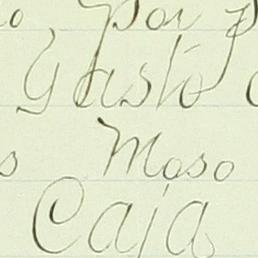 o, por p
Gasto
s Moso
Caja